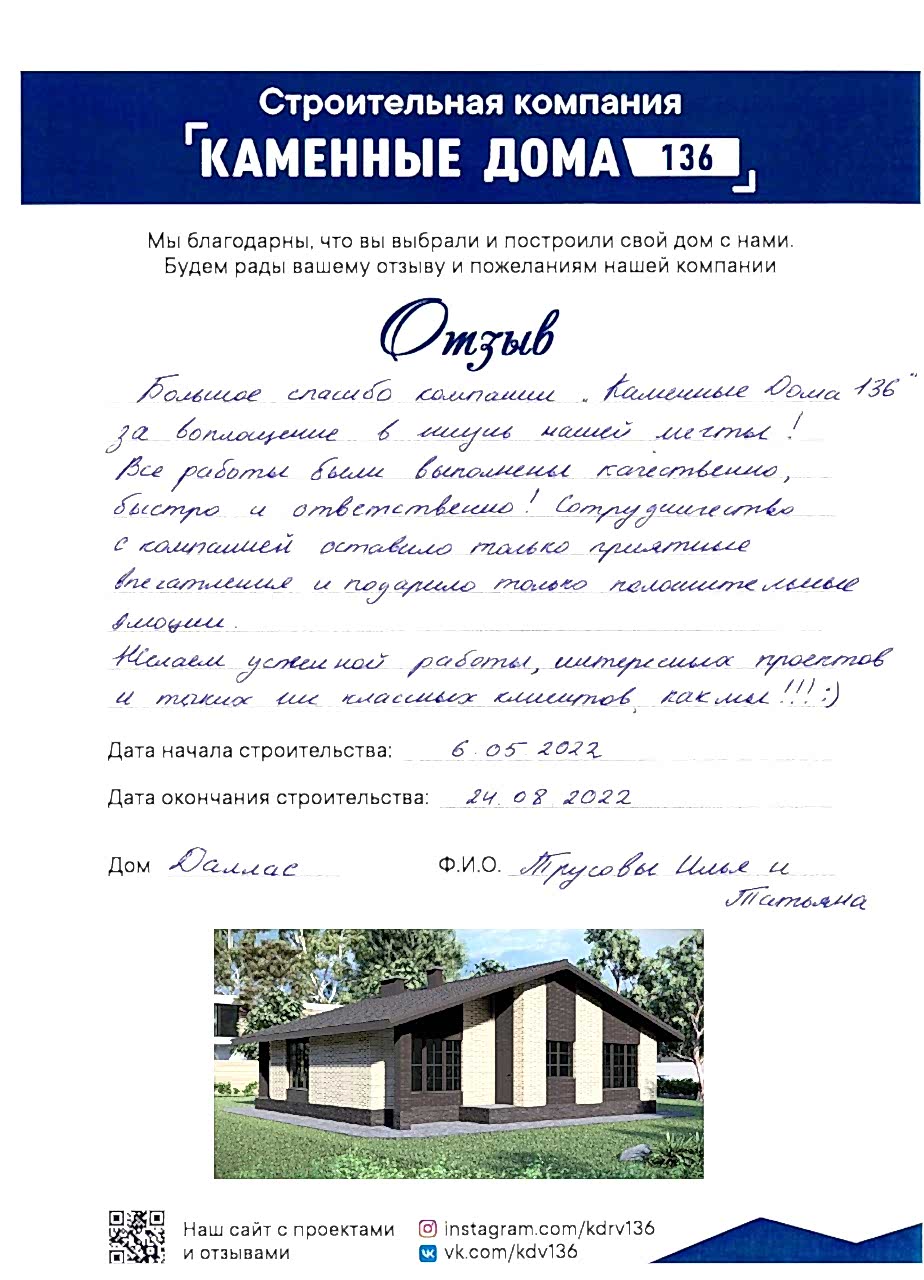 Строительная компания
КАМЕННЫЕ ДОМА 136
Мы благодарны, что вы выбрали и построили свой дом с нами.
Будем рады вашему отзыву и пожеланиям нашей компании
Отзыв
Большое спасибо компании „Каменные Дома 136"
за воплощение в жизнь нашей мечты!
Все работы были выполнены качественно,
быстро и ответственно! Сотрудничество
с компанией оставило только приятные
впечатления и подарило только положительные
эмоции.
Желаем успешной работы, интересных проектов
и таких же классных клиентов, как мы!!! :)
Дата начала строительства: 6.05.2022
Дата окончания строительства: 24.08.2022
Дом Даллас Ф.И.О. Трусовы Илья и
Татьяна
Наш сайт с проектами
и отзывами
instagram.com/kdrv136
vk.com/kdv136